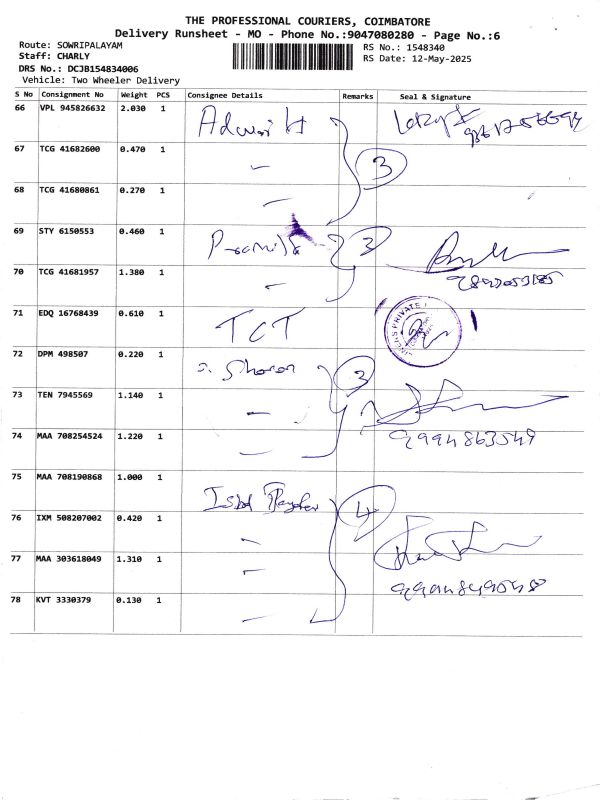 THE PROFESSIONAL COURIERS, COIMBATORE
Delivery Runsheet - MO - Phone No.:9047080280 - Page No.:6
Route: SOWRIPALAYAM
Staff: CHARLY
DRS No.: DCJB154834006
Vehicle: Two Wheeler Delivery
RS No.: 1548340
RS Date: 12-May-2025
S No Consignment No Weight PCS Consignee Details Remarks Seal & Signature
66 VPL 945826632 2.030 1
67 TCG 41682600 0.470 1 3
68 TCG 41680861 0.270 1
69 STY 6150553 0.460 1
70 TCG 41681957 1.380 1
71 EDQ 16768439 0.610 1 TCT
72 DPM 498507 0.220 1 Sharon 3
73 TEN 7945569 1.140 1
74 MAA 708254524 1.220 1 9994863549
75 MAA 708190868 1.000 1
76 IXM 508207002 0.420 1 4
77 MAA 303618049 1.310 1
78 KVT 3330379 0.130 1